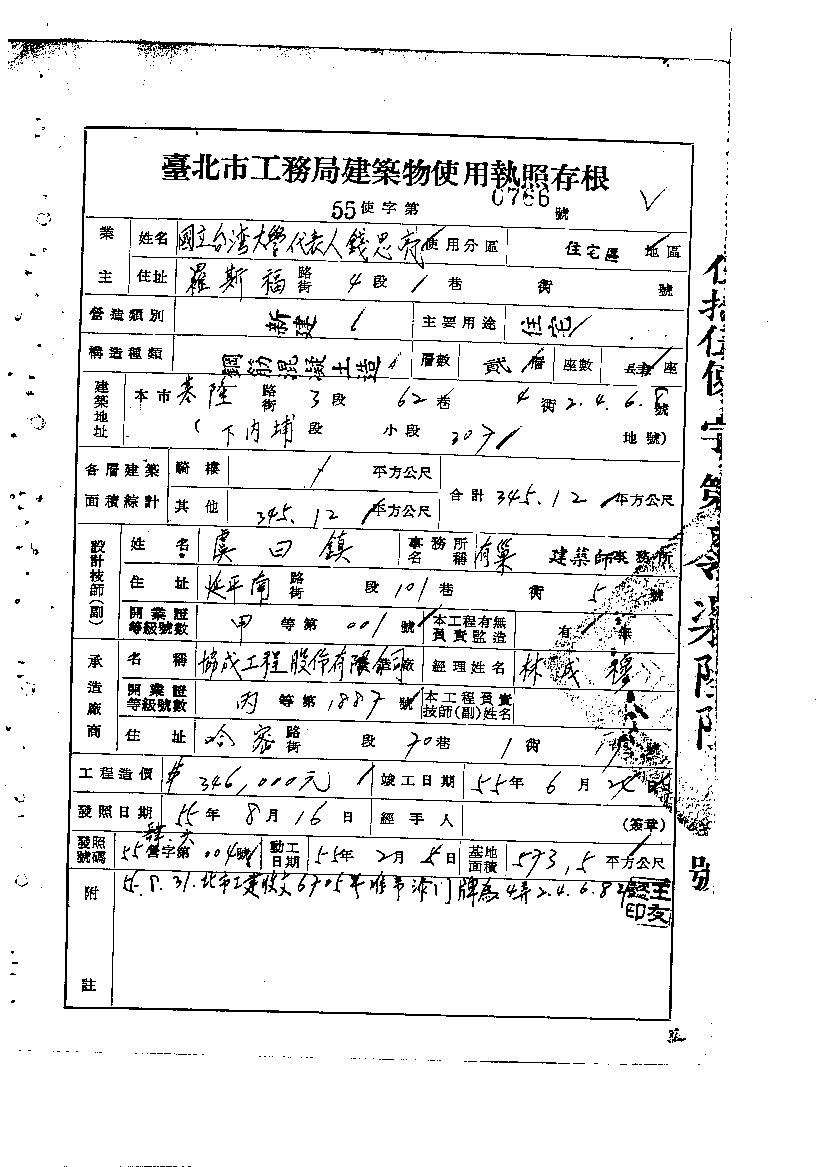 臺北市工務局建築物使用執照存根
55使字第0766號
業主 姓名 國立台灣大學代表人錢思亮 使用分區 住宅區 地區
住址 羅斯福路街 4段 1巷 街 號
營造類別 新建 主要用途 住宅
構造種類 鋼筋混凝土造 層數 貳層 座數 座
建築地址 本市基隆路街 3段 62巷 4街 2.4.6.8號
(下內埔段 小段 地號)
各層建築面積綜計 騎樓 平方公尺 合計 345.12 平方公尺
其他 345.12 平方公尺
設計技師(副) 姓名 虞曰鎮 事務所名稱 有巢 建築師事務所
住址 延平南路街 段 101巷 街 5號
開業證等級號數 甲等第001號 本工程有無負責監造 有 無
承造廠商 名稱 協成工程股份有限公司 造廠 經理姓名 林成
開業證等級號數 丙等第1887號 本工程負責技師(副)姓名
住址 哈密路街 段 70巷 1街 號
工程造價 346,000元 竣工日期 55年 6月 日
發照日期 55年 8月 16日 經手人 (簽章)
發照號碼 55營字第004號 動工日期 55年 2月 5日 基地面積 573.5平方公尺
附註 55.8.31.北市工建收文6705號准予添門牌為4弄2.4.6.8
號